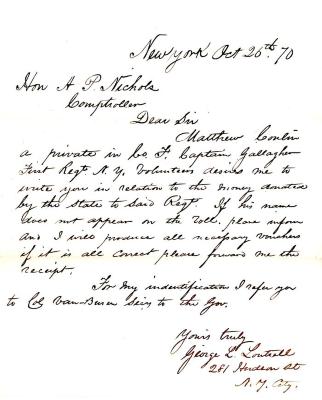 New York Oct 26th. 70
Hon A. P. Nichols
Comptroller
Dear Sir
Matthew Conlin
a private in Co F, Captain Gallagher
First Regt. N. Y. Volunteers desires me to
write you in relation to the money donated
by the State to said Regt. If his name
does not appear on the roll, please inform
and I will produce all necessary vouchers
if it is all correct please forward me the
receipt.
For my indentification I refer you
to Col Van Buren to the Gov.
Yours truly
George L.
281 Hudson St
N. Y. City.